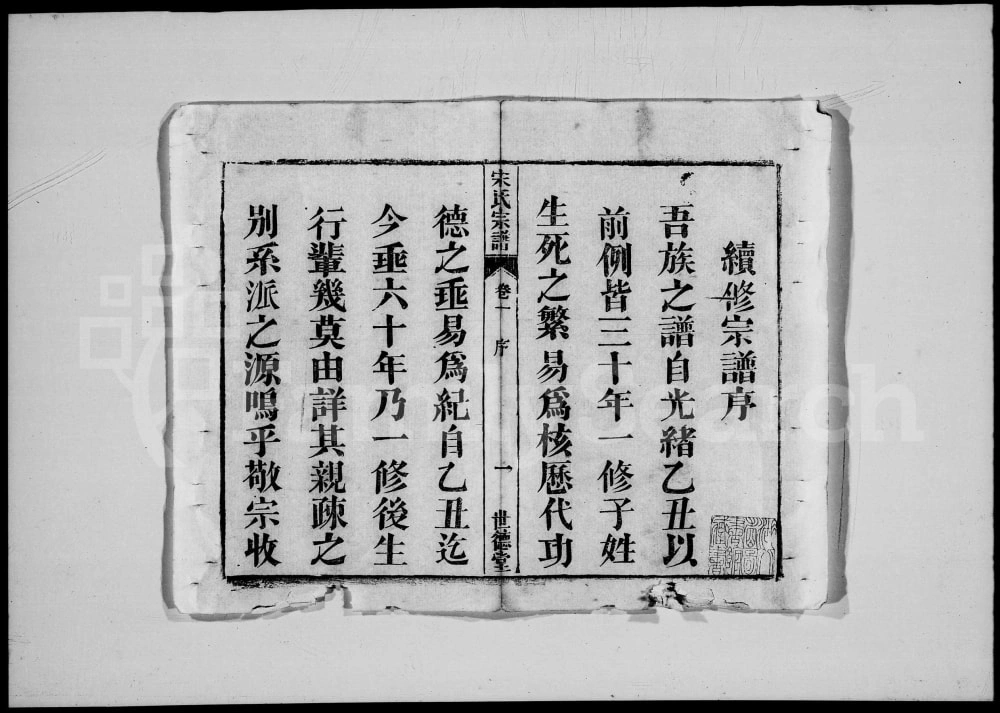 續修宗譜序
吾族之譜自光緒乙丑以
前例皆三十年一修子姓
生死之繁易爲核歷代功
宋氏宗譜
卷一
序
一
世德堂
德之垂易爲紀自乙丑迄
今垂六十年乃一修後生
行輩幾莫由詳其親疎之
別系派之源嗚乎敬宗收